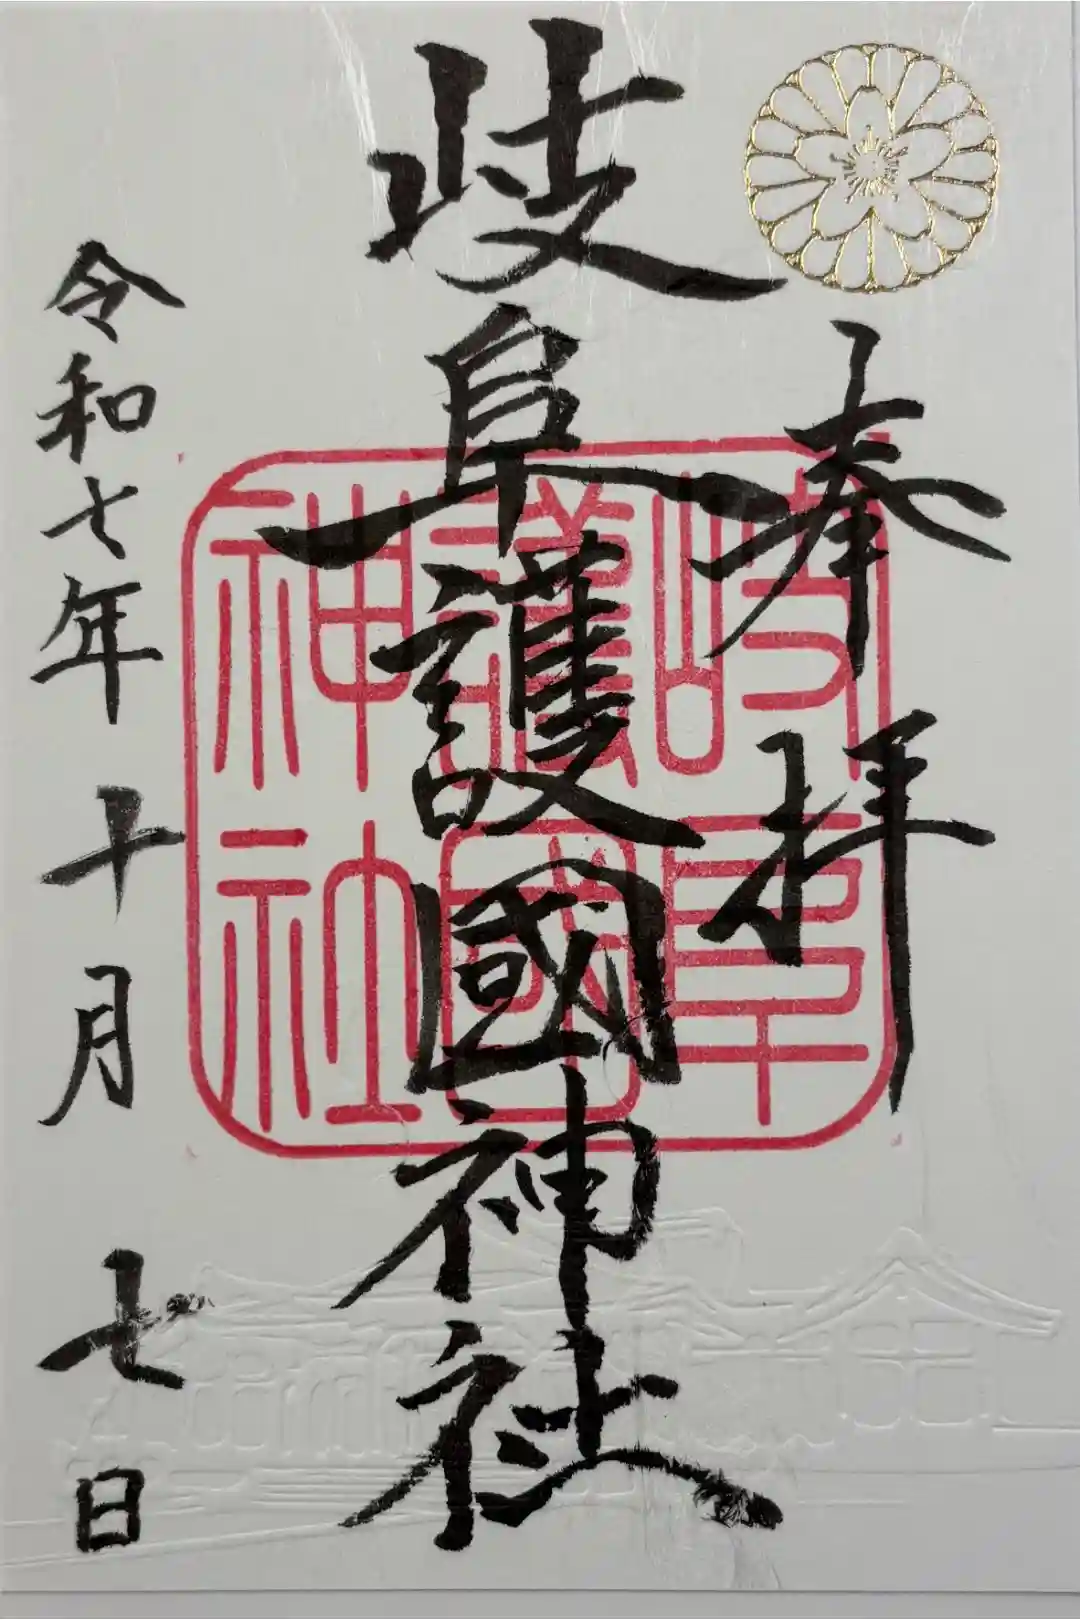 奉拝
岐阜護國神社
岐阜
護國
神社
令和七年十月七日